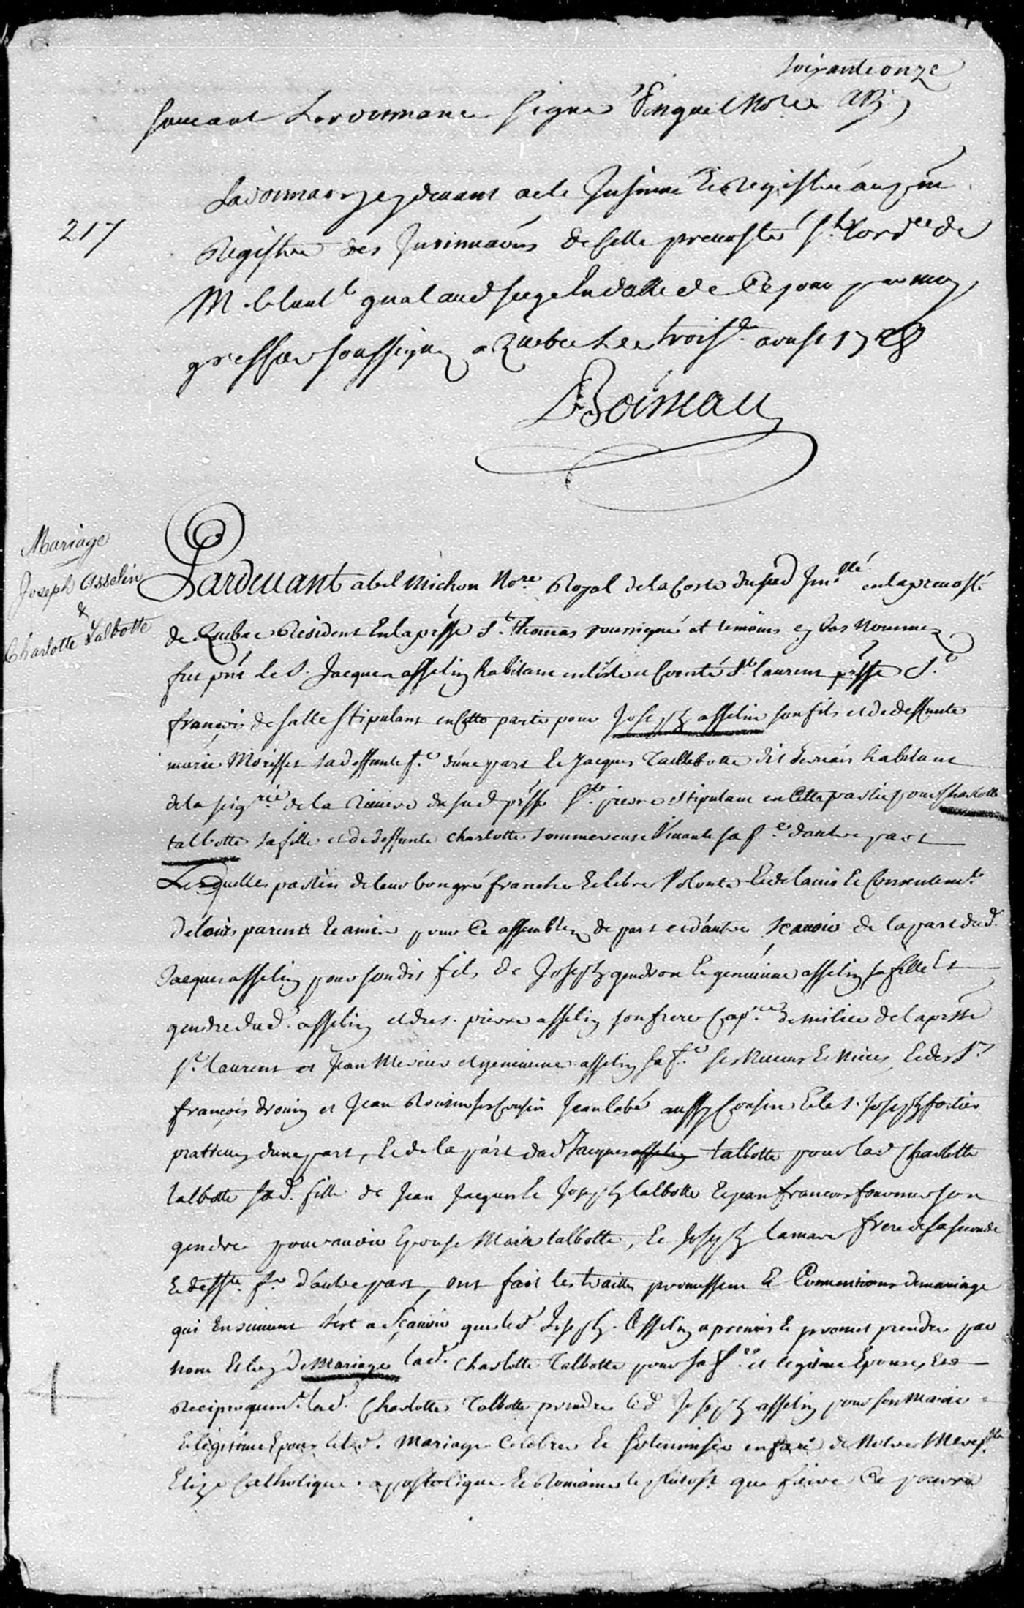 soixante onze
suivant Lordonnance signé Pinguet Nore
La donnation cy devant a ete Insinué Et Registré au
217
Registre des Insinuãons de cette prevosté St Lordce de
M. le Lieut. gnal aud siege En datte de Ce jour par moy
greffier soussigné a Quebec Le trois aoust 1728
Boisseau
Mariage
Joseph Asselin
&
Charlotte Talbotte
Pardevant abel Michon Nore Royal de la Coste du sud Immlé en la prevosté
de Quebec Resident En la pssse St. thomas soussigné et temoins cy bas Nommez
fut pnt le S. Jacques asselin habitant en lisle et Comté St. laurent pssse St.
françois de Salle stipulant en Cette partie pour Joseph asselin son fils et de deffunte
marie Morisset sa deffunte fe. d'une part Et Jacques Tallebotte dit Gervais habitant
de la seigrie de la Riviere du sud pssse St. pierre stipulant en Cette partie pour Charlotte
talbotte sa fille et de deffunte Charlotte Sommereuse vivante sa fe. d'autre part
Lesquelles parties de leur bon gré franche Et libre Volonté Et de lavis Et Consentemt.
de leurs parents Et amis pour Ce assemblez de part et d'autre scavoir de la part dud.
Jacques asselin pour sondit fils de Joseph gendron Et geneviève asselin sa fille Et
gendre dud. asselin et de s. pierre asselin son frere Capne de milice de la pssse
St. laurent et Jean Mercier et genevieve asselin sa fe. ses Neveux Et Niece, Et des Srs
françois drouin et Jean son Cousin Jean labé aussy Cousin Et le s. Joseph fortier
d'une part, Et de la part dud Jacques asselin talbotte pour lad Charlotte
talbotte sad. fille de Jean Jacques Et Joseph talbotte Et Jean francois fournier son
gendre pour avoir Epousé Marie talbotte, Et Joseph Lamare frere de sa seconde
Et deffte. fe. d'autre part, ont fait les traittés promesses Et Conventions de mariage
qui Ensuivent C'est a Scavoir que led. Joseph Asselin a promis Et promet prendre par
nom Et loy de Mariage lad. Charlotte Talbotte pour sa fe. et legitime Epouse, Et
Reciproquemt. lad. Charlotte Talbotte prendre led Joseph asselin pour son Marie
Et legitime Epoux Et led. Mariage Celebrer Et solemniser en face de Notre Mere Ste
Elize Catholique apostolique Et Romaine le plutost que faire Ce pourra